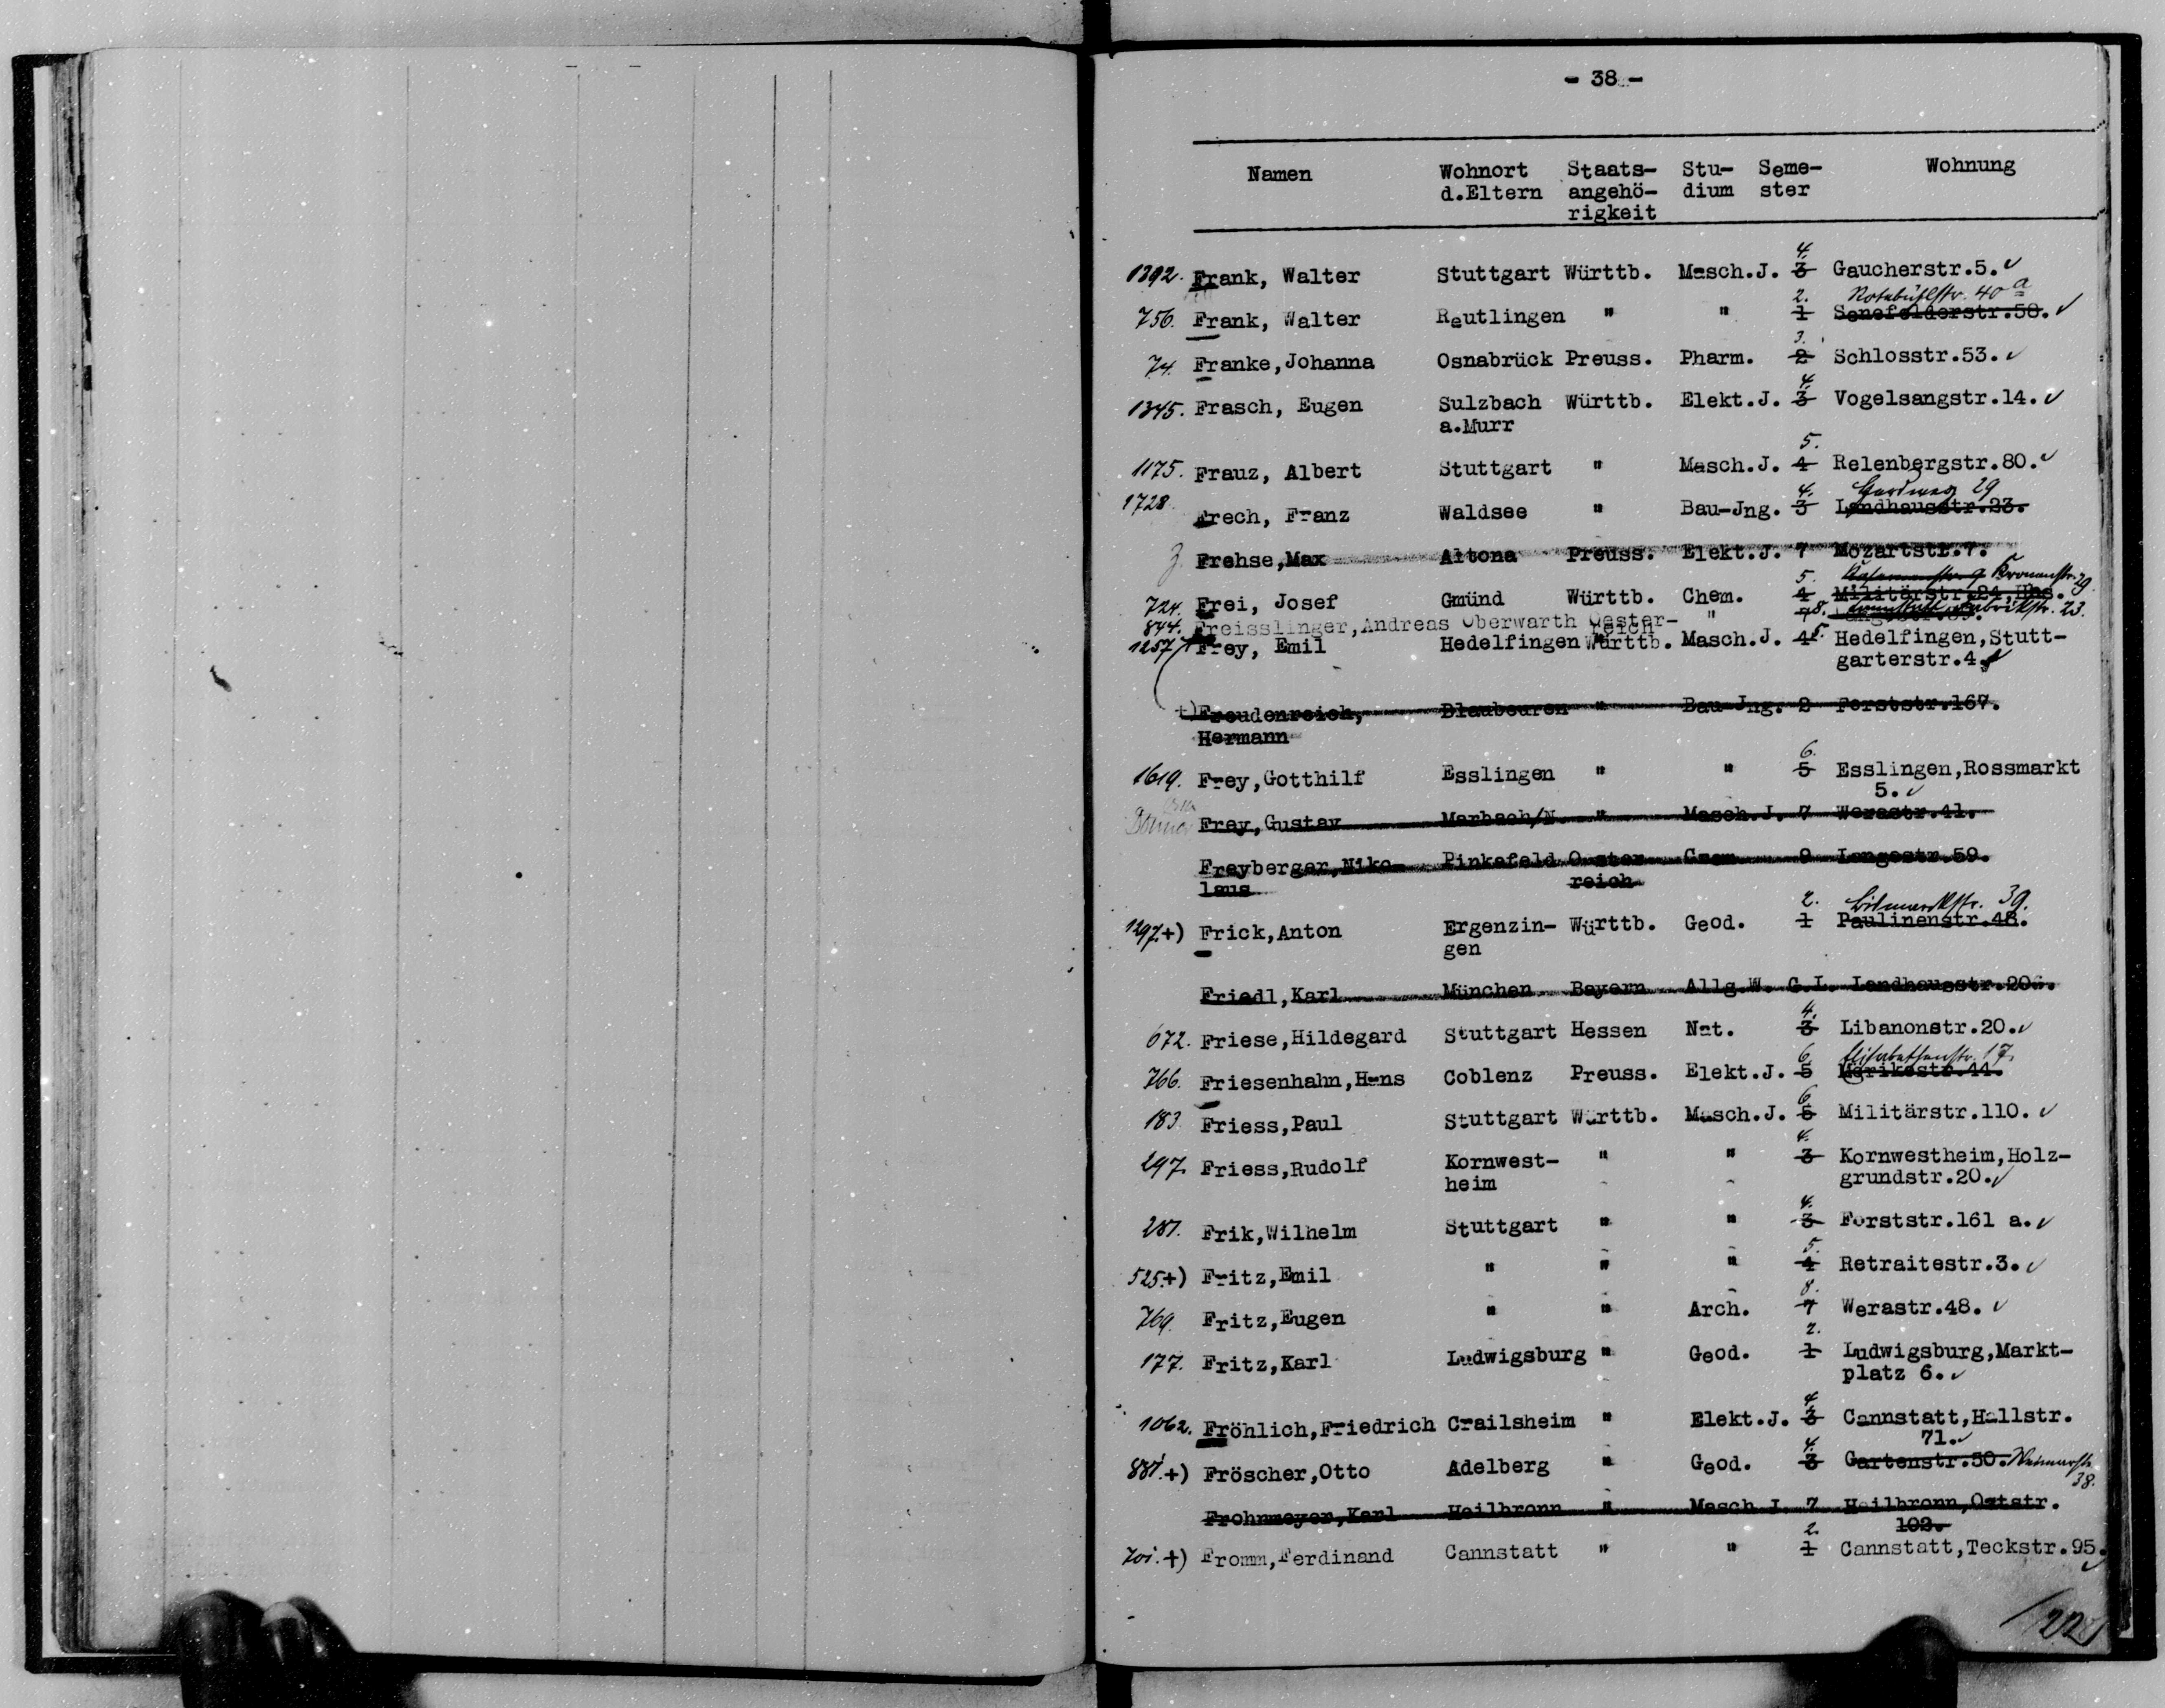 - 38 -
Namen Wohnort d.Eltern Staats-angehö-rigkeit Stu-dium Seme-ster Wohnung
1392. Frank, Walter Stuttgart Württb. Masch.J. 3 4. Gaucherstr.5.
756. Frank, Walter Reutlingen " " 1 2. Senefelderstr.58. Rotebühlstr. 40 a
74. Franke,Johanna Osnabrück Preuss. Pharm. 2 3. Schlosstr.53.
1345. Frasch, Eugen Sulzbach Württb. Elekt.J. 3 4. Vogelsangstr.14.
a.Murr
1175. Frauz, Albert Stuttgart " Masch.J. 4 5. Relenbergstr.80.
1728 Frech, Franz Waldsee " Bau-Jng. 3 4. Landhausstr.23. 29
Frehse,Max Altona Preuss. Elekt.J. 7 Mozartstr.7.
724. Frei, Josef Gmünd Württb. Chem. 4 5. Militärstr.24.Hhs. Kronenstr. 29
844. Freisslinger,Andreas Oberwarth Oester-reich " 7 8. 23.
1257 Frey, Emil Hedelfingen Württb. Masch.J. 4 5. Hedelfingen,Stutt-
garterstr.4.
+) Freudenreich, Blaubeuren " Bau-Jng. 2 Forststr.167.
Hermann
1619. Frey,Gotthilf Esslingen " " 5 6. Esslingen,Rossmarkt
5.
Frey,Gustav Marbach/N. " Masch.J. 7 Werastr.41.
Freyberger,Niko- Pinkafeld Oester- Chem. 9 Langestr.59.
laus reich
1297.+) Frick,Anton Ergenzin- Württb. Geod. 1 2. Paulinenstr.48. Bismarckstr. 39.
gen
Friedl,Karl München Bayern Allg.W. G.L. Landhausstr.206.
672. Friese,Hildegard Stuttgart Hessen Nat. 3 4. Libanonstr.20.
766. Friesenhahn,Hans Coblenz Preuss. Elekt.J. 5 6. Mörikestr.44. Elisabethenstr. 17.
183. Friess,Paul Stuttgart Württb. Masch.J. 5 6. Militärstr.110.
297. Friess,Rudolf Kornwest- " " 3 4. Kornwestheim,Holz-
heim grundstr.20.
281. Frik,Wilhelm Stuttgart " " 3 4. Forststr.161 a.
525.+) Fritz,Emil " " " 4 5. Retraitestr.3.
769. Fritz,Eugen " " Arch. 7 8. Werastr.48.
177. Fritz,Karl Ludwigsburg " Geod. 1 2. Ludwigsburg,Markt-
platz 6.
1062. Fröhlich,Friedrich Crailsheim " Elekt.J. 3 4. Cannstatt,Hallstr.
71.
881.+) Fröscher,Otto Adelberg " Geod. 3 4. Gartenstr.50. Weimarstr. 38.
Frohnmeyer,Karl Heilbronn " Masch.J. 7 Heilbronn,Oststr.
102.
701.+) Fromm,Ferdinand Cannstatt " " 1 2. Cannstatt,Teckstr.95.
22